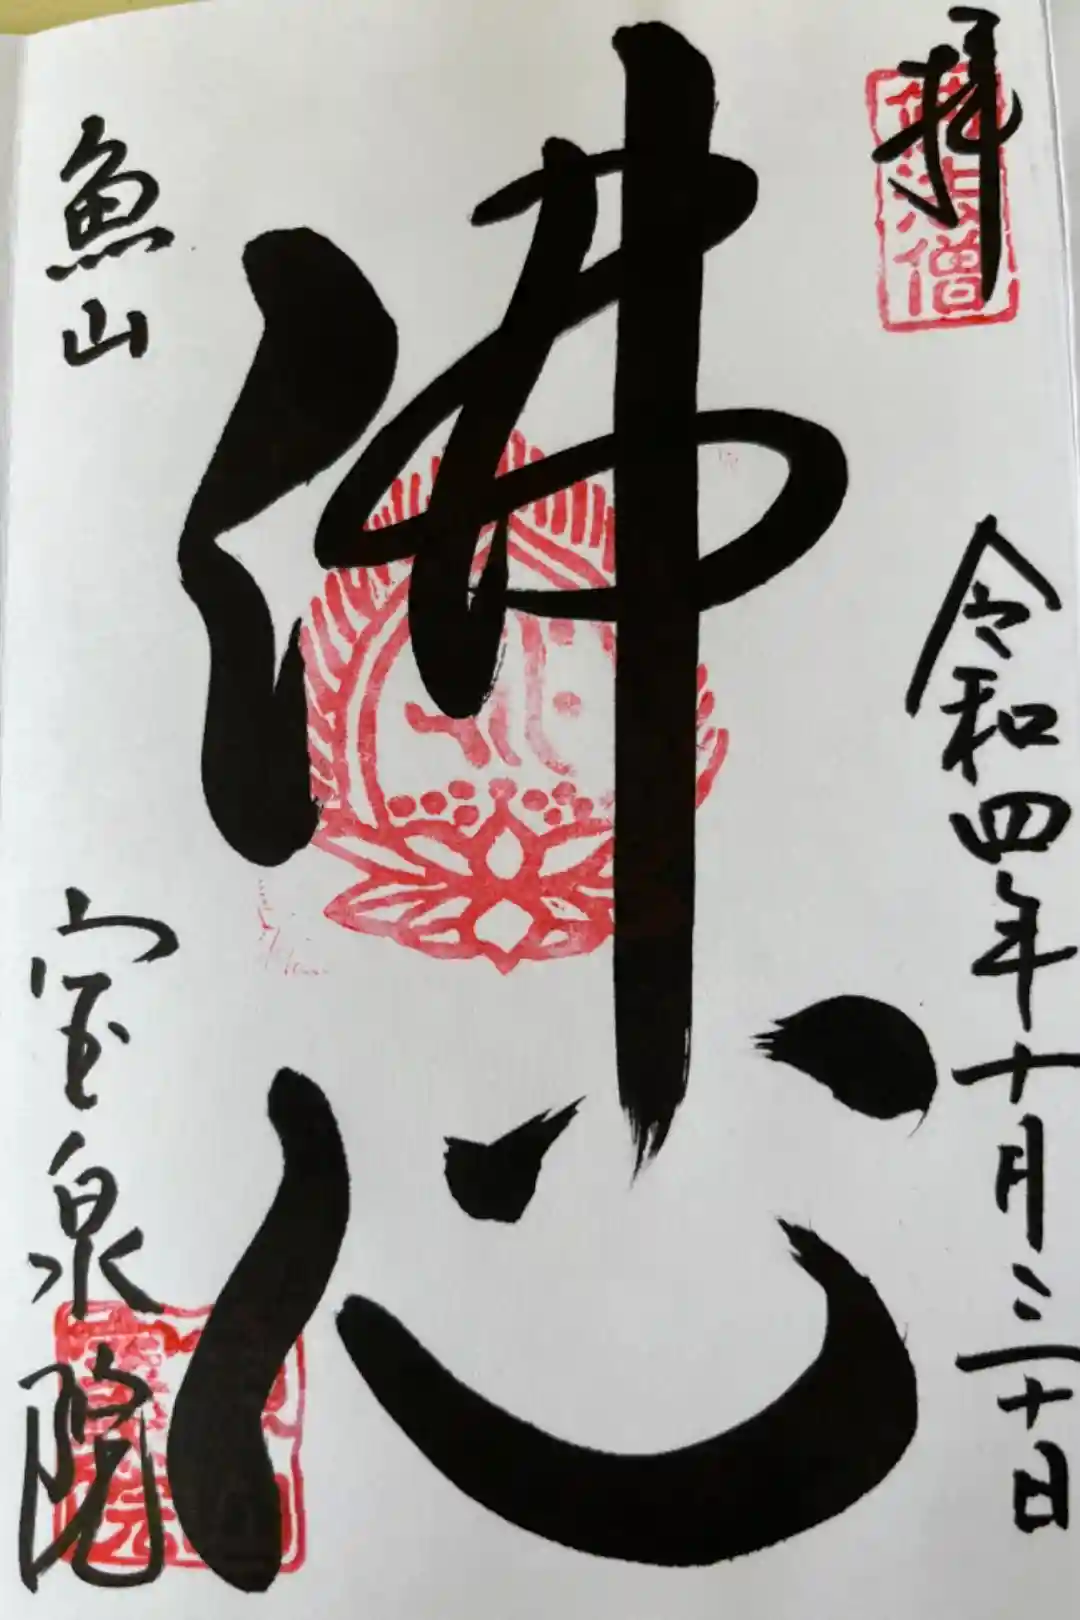 拝
令和四年十月三十日
佛心
魚山
宝泉院